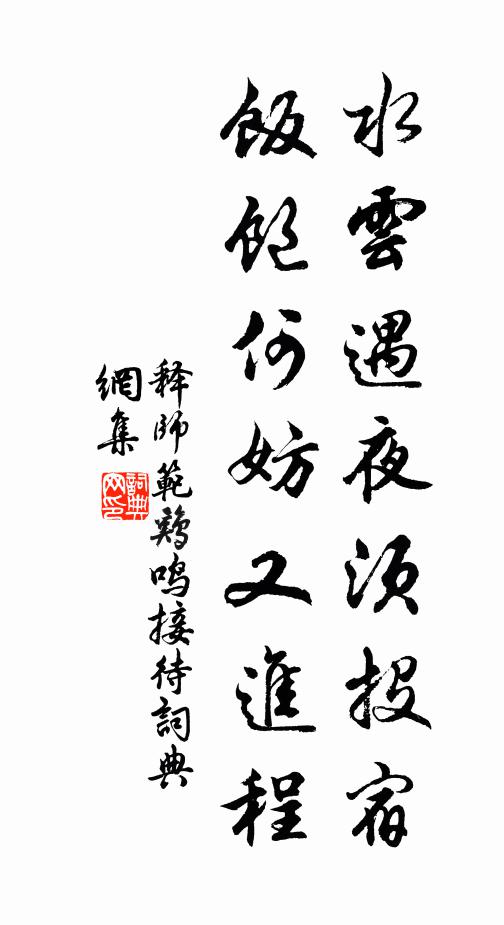 水雲遇夜須投宿
飯飽何妨又進程
释師範鷄鳴接待詞典
網集
詞典
网印